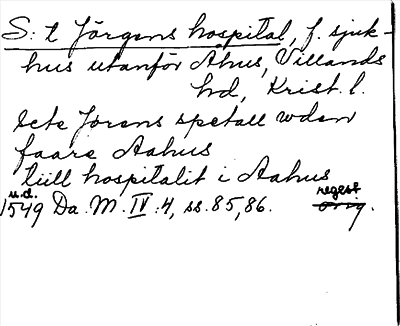 S:t Jörgens hospital, f. sjuk-
hus utanför Åhus, Villands
hd, Krist. l.
Scte Jorens spetall wden
faare Aahus
tüll hospitalit i Aahus
u.d. regest
1549 Da. M. IV:4, ss. 85, 86. orig.